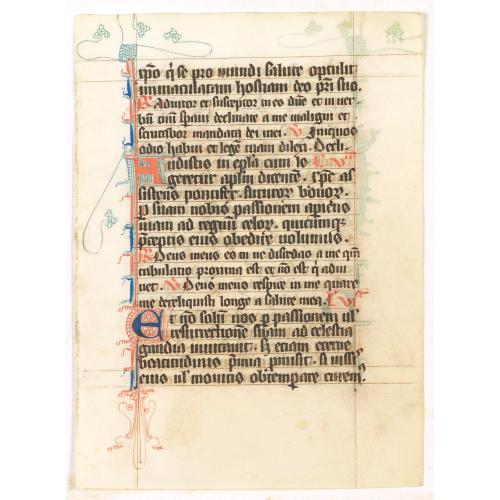 xpo q se pro mundi salute optulit
immaculatam hostiam deo pri suo.
R Adiutor et susceptor meus es dne et in ver
bum tuum spaui declinate a me maligni et
scrutabor mandata dei mei. V Iniquos
odio habui et lege tuam dilexi. Decli.
Audistis in epla cum le
geretur aplm dicente. xpc as
sistens pontifex futuror bonor.
p suam nobis passionem apiens
uiam ad regnum celor. quicumq
pceptis eius obedire uolumus.
R Deus meus es tu ne discedas a me qm
tribulatio proxima est et no est q adiu
uet. V Deus meus respice in me quare
me dereliquisti longe a salute mea.
Et no solum nos p passionem ul
resurrectione suam ad celestia
gaudia inuitauit. sz etiam eterne
beatitudinis pmia pmisit. si iussis
eius ul monitis obtempare curem